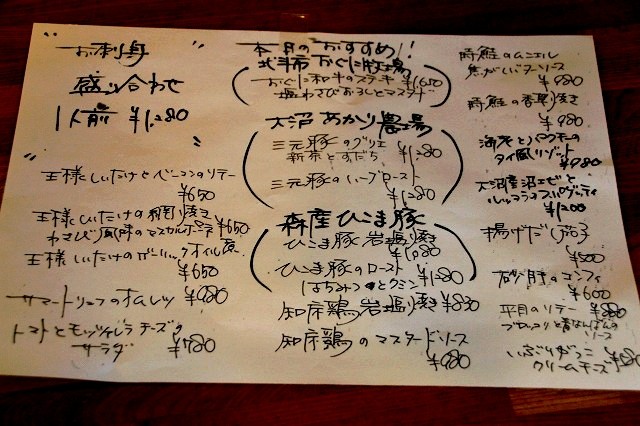 お刺身
盛り合わせ
1人前 ¥1,280
王様しいたけとベーコンのソテー
¥650
王様しいたけの網焼き
わさび風味のマスカルポーネ ¥650
王様しいたけのガーリックオイル煮
¥650
サマートリュフのオムレツ ¥980
トマトとモッツァレラチーズの
サラダ ¥780
本日のおすすめ!!
北斗市おぐに牧場
おぐに和牛のステーキ ¥1,650
塩わさびおろしとマスタード
大沼あかり農場
三元豚のグリエ ¥1,280
新茶とすだち
三元豚のハーブロースト
¥1,280
森産ひこま豚
ひこま豚岩塩焼き
¥1,080
ひこま豚のロースト
はちみつとクミン ¥1,280
知床鶏岩塩焼き ¥830
知床鶏のマスタードソース
¥980
時鮭のムニエル
焦がしバターソース
¥980
時鮭の香草焼き
¥980
海老とパクチーの
タイ風リゾット
¥980
大沼産沼エビと
ルッコラのスパゲッティ
¥1,200
揚げだし
¥500
砂肝のコンフィ
¥600
平目のソテー ¥880
ブロッコリと青なんばんの
ソース
いぶりがっこ
クリームチーズ